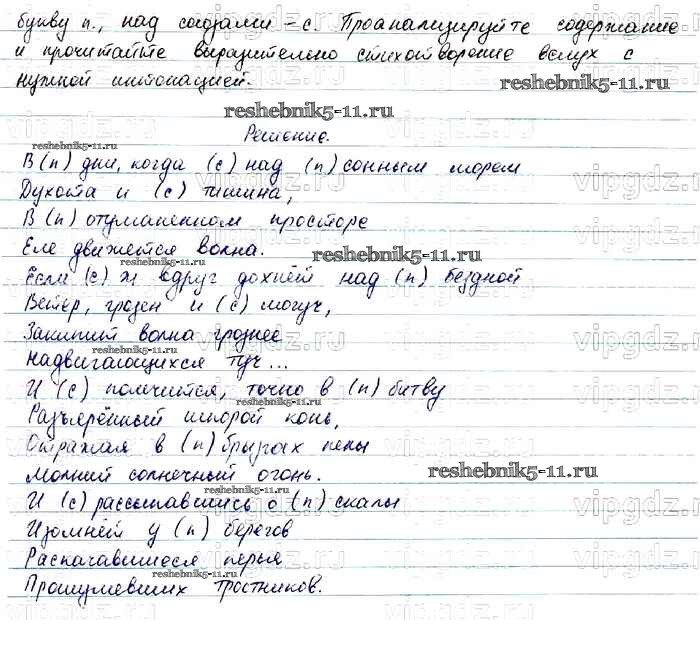 букву п., над союзами - с. Проанализируйте содержание
и прочитайте выразительно стихотворение вслух с
нужной интонацией.
reshebnik5-11.ru/
Решение.
reshebnik5-11.ru
В (п) дни, когда (с) над (п) сонным морем
Духота и (с) тишина,
В (п) отуманенном просторе
Еле движется волна.
reshebnik5-11.ru
reshebnik5-11.ru
Если (с) ж вдруг дохнёт над (п) бездной
Ветер, грозен и (с) могуч,
Закипит волна грознее
reshebnik5-11.ru
Надвигающихся туч...
И (с) помчится, точно в (п) битву
reshebnik5-11.ru
Разъярённый шпорой конь,
Отражая в (п) брызгах пены
Молний солнечный огонь.
reshebnik5-11.ru
reshebnik5-11.ru
И (с) рассыпавшись о (п) скалы
Изомнёт у (п) берегов
Раскачавшиеся перья
reshebnik5-11.ru
Прошумевших тростников.
vipgdz.ru